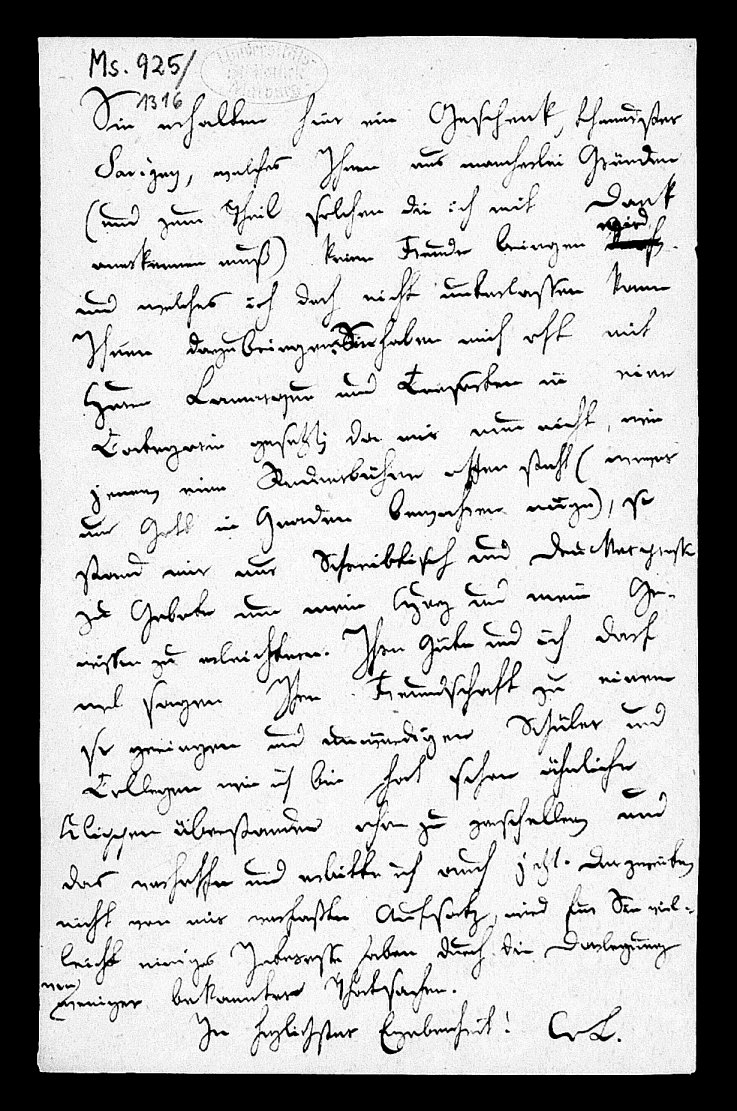 Ms. 925/
1316
Universitäts-
Bibliothek
Marburg
Sie erhalten hier ein Geschenk, theuerster
Savigny, welches Ihnen aus mancherlei Gründen
(und zum Theil solchen die ich mit Dank
anerkennen muß) keine Freude bringen wird
und welches ich doch nicht unterlassen kann
Ihnen darzubringen. Sie haben mich oft mit
Herrn und in eine
Categorie gesetzt; da mir nun nicht, wie
jenen eine Rednerbühne offen steht (
uns Gott in Gnaden bewahren möge), so
stand mir nur Schreibtisch und Druckerpresse
zu Gebote um mein Herz und mein Ge-
wissen zu erleichtern. Ihre Güte und ich darf
wol sagen Ihre Freundschaft zu einem
so geringen und unwürdigen Schüler und
Collegen wie ich bin hat schon ähnliche
Klippen überstanden ohne zu zerschellen und
das verhoffe und erbitte ich auch jetzt. Der zweite
nicht von mir verfaßte Aufsatz, wird für Sie viel-
leicht einiges Interesse haben durch die Darlegung
weniger bekannter Thatsachen.
In herzlichster Ergebenheit!